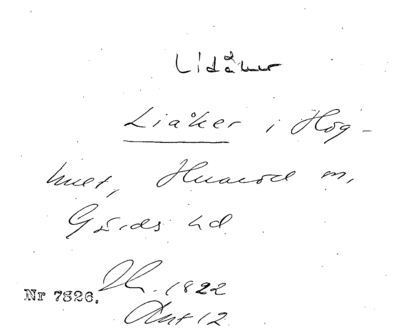 Lidåker
Liåker i Hög-
hult, Huaröd sn,
Gärds hd
Nr 7826. Sk. 1822
Akt 12